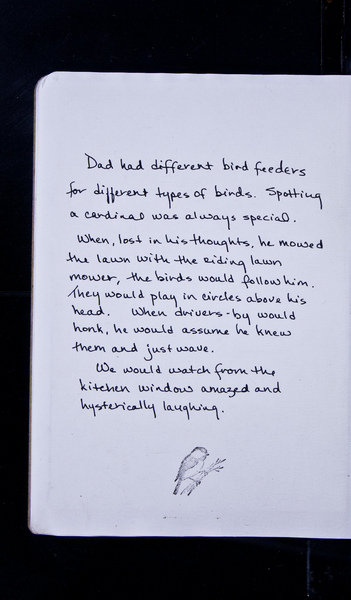 Dad had different bird feeders
for different types of birds. Spotting
a cardinal was always special.
When, lost in his thoughts, he mowed
the lawn with the riding lawn
mower, the birds would follow him.
They would play in circles above his
head. When drivers-by would
honk, he would assume he knew
them and just wave.
We would watch from the
kitchen window amazed and
hysterically laughing.